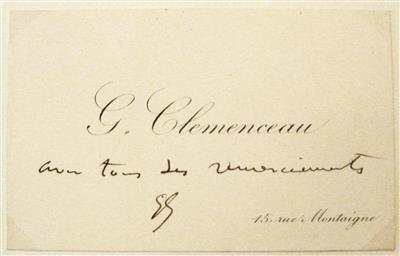 G. Clemenceau
avec tous ses remerciements
GC
15, rue Montaigne